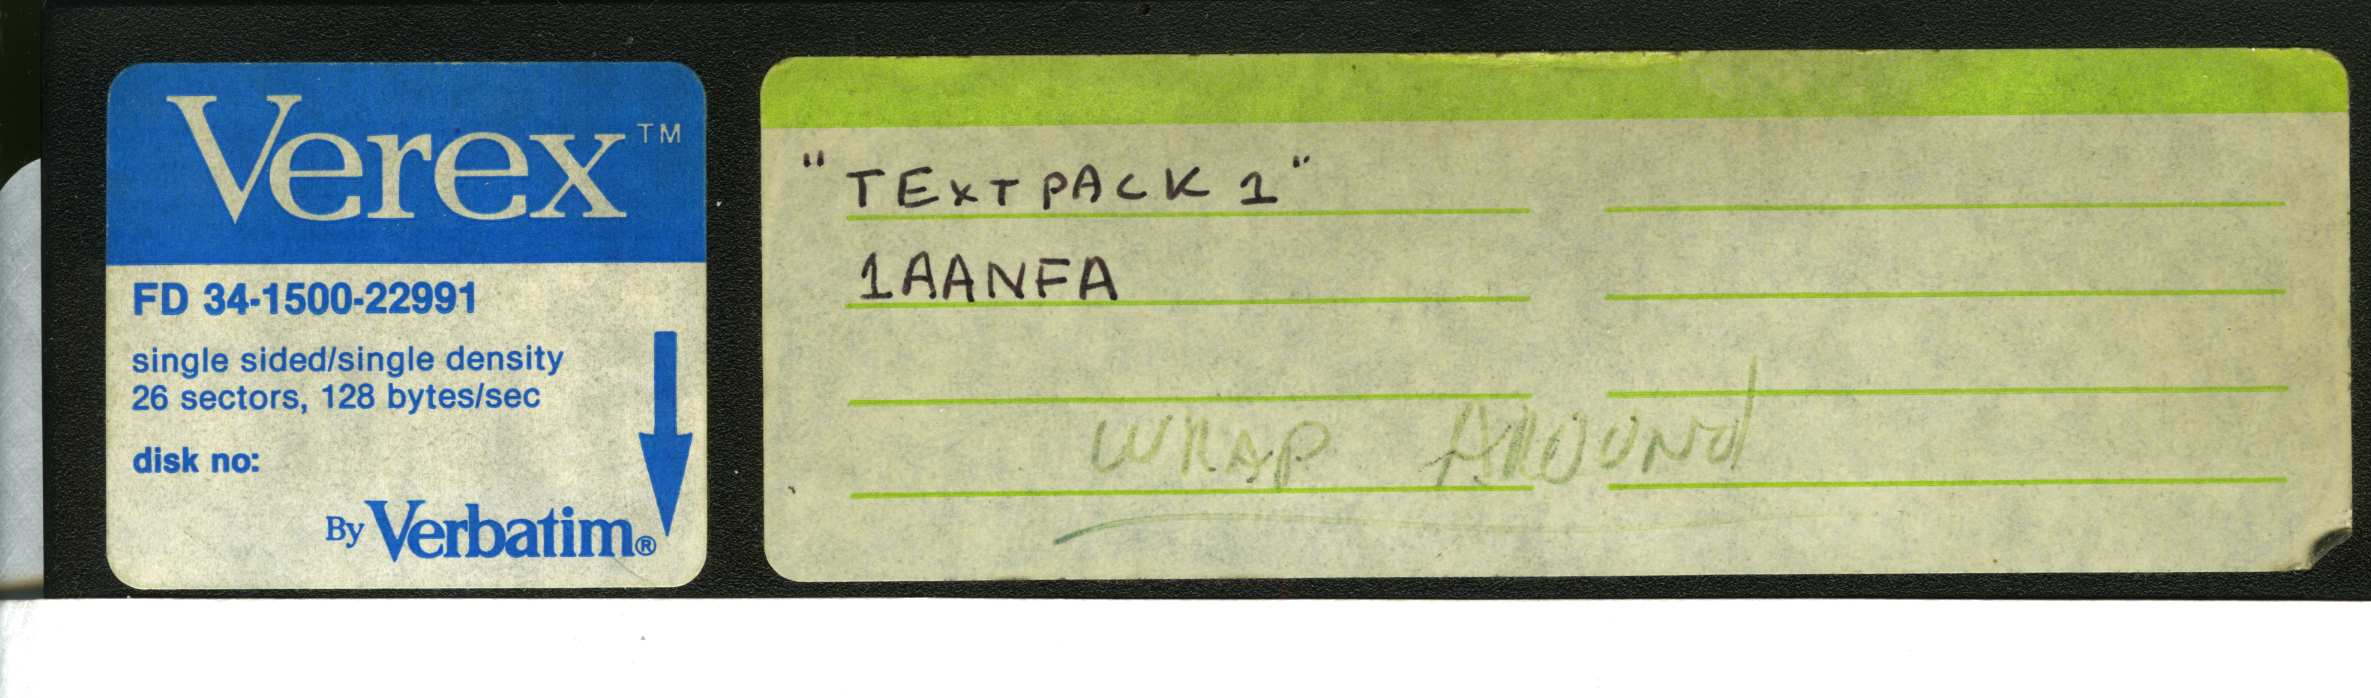 Verex™
FD 34-1500-22991
single sided/single density
26 sectors, 128 bytes/sec
disk no:
By Verbatim®
"TExTPACK 1"
1AANFA
WRAP AROUNd